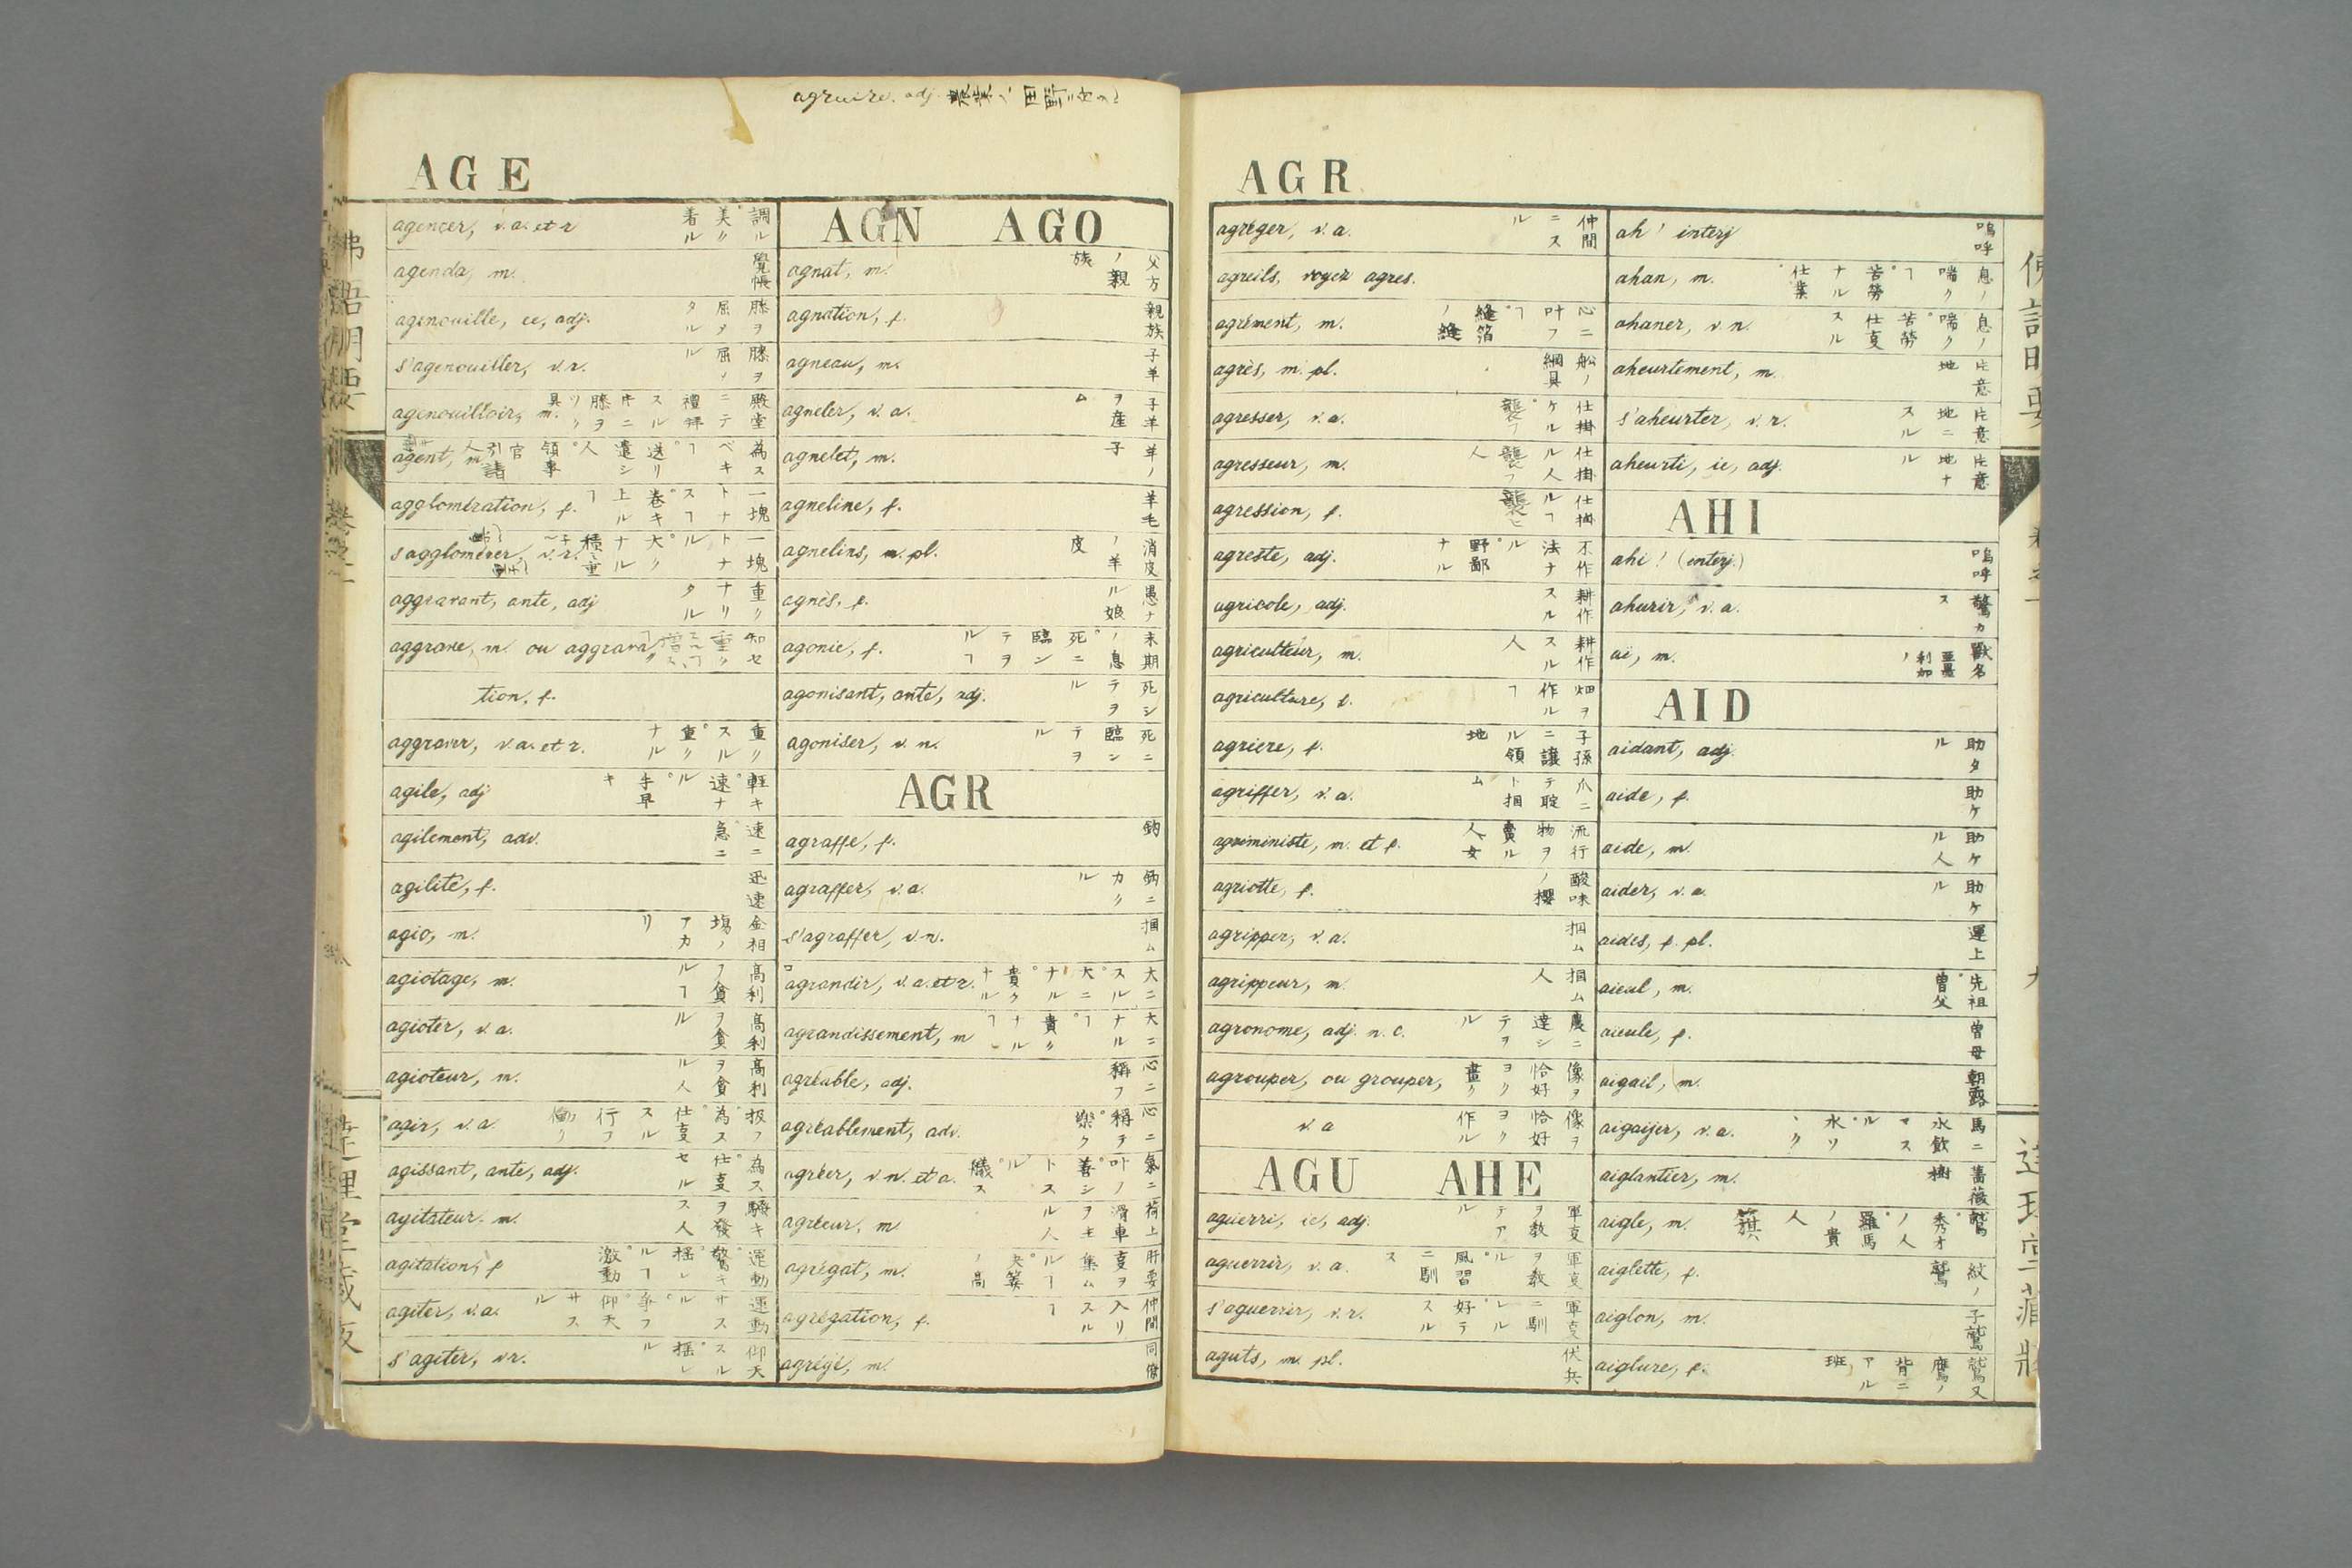 agraire, adj. 農業ノ田野ニ
AGE
agencer, v.a. et r 調ル美〃着ル
agenda, m. 覺帳
agenouillé, ée, adj. 膝ヲ屈タタル
s'agenouiller, v.r. 膝ヲ屈ル
agenouilloir, m. 殿堂ニテ禮拝スル牛ニ膝ヲツリ具
agent, m. 為スベキヿ。送リ遣シ人。領事官
agglomération, f. 一塊トナスヿ。巻キ上ルヿ
s'agglomérer, v.r. 一塊トナル。大〃ナル
aggravant, ante, adj 重〃ナリタル
aggrave, m. ou aggrava 知セ
tion, f.
aggraver, v.a. et r. 重〃スル。重〃ナル
agile, adj 軽キ。速ナル。手早キ
agilement, adv. 速ニ。急ニ
agilité, f. 迅速
agio, m. 金相塲ノアカリ
agiotage, m. 高利ヲ貪ルヿ
agioter, v.a. 高利ヲ貪ル
agioteur, m. 高利ヲ貪ル人
agir, v.a 扱フ。為ス。仕㕝スル 行フ 働ク
agissant, ante, adj. 為ス。仕㕝セル
agitateur, m. 騒キヲ發ス人
agitation, f 運動。驚キ。揺レルヿ。激動
agiter, v.a. 運動サスル。争フ。仰天サスル
s'agiter, v.r. 仰天スル。揺レル
AGN AGO
agnat, m. 父方ノ親族
agnation, f. 親族
agneau, m. 子羊
agneler, v.a. 子羊ヲ産ム
agnelet, m. 羊ノ子
agneline, f. 羊毛
agnelins, m. pl. 消皮ノ羊皮
agnès, f. 愚ナル娘
agonie, f. 末期ノ息。死ニ臨ンテヲルヿ
agonisant, ante, adj. 死シテヲル
agoniser, v.n. 死ニ臨ンテヲル
AGR
agraffe, f. 鈎
agraffer, v.a. 鈎ニカ〃ル
s'agraffer, v.n. 掴ム
agrandir, v.a. et r. 大ニスル。大ニナル。貴クナル
agrandissement, m 大ニナルヿ。貴〃ナルヿ
agréable, adj. 心ニ稱フ
agréablement, adv. 心ニ稱テ。樂ク
agréer, v.n. et a. 氣ニ叶ノ 善シトスル。艤ス
agréeur, m. 荷上滑車ヲ主ル人
agrégat, m. 肝要㕝ヲ集ムルヿ
agrégation, f. 仲間入リスルヿ
agrégé, m. 同僚
AGR
agréger, v.a. 仲間ニスル
agreils, voyez agres.
agrément, m. 心ニ叶フヿ。縫箔ノ縫
agrès, m. pl. 船ノ綱具
agresser, v.a. 仕掛ケル。襲フ
agresseur, m. 仕掛ル人 襲フ人
agression, f. 仕掛ルヿ 襲ヒ
agreste, adj. 不作法ナル。野鄙ナル
agricole, adj. 耕作スル
agriculteur, m. 耕作スル人
agriculture, f. 畑ヲ作ルヿ
agrière, f. 子孫ニ譲ル領地
agriffer, v.a. 爪ニテ
agriministe, m. et f. 流行物ヲ賣ル人女
agriotte, f. 酸味ノ櫻
agripper, v.a. 掴ム
agrippeur, m. 掴ム人
agronome, adj. n. c. 農ニ達シテヲル
agrouper, ou grouper, 像ヲ恰好ヨク畫ク
v.a 像ヲ恰好ヨク作ル
AGU AHE
aguerri, ie, adj. 軍㕝ヲ教テアル
aguerrir, v.a. 軍㕝ヲ教ル。風習ニ馴ス
s'aguerrir, v.r. 軍㕝ニ馴レル。好テスル
aguts, m. pl. 伏兵
ah! interj 嗚呼
ahan, m. 息ノ喘クヿ。苦勞ナル仕業
ahaner, v.n. 息ノ喘ク。苦勞仕㕝スル
aheurtement, m. 片意地
s'aheurter, v.r. 片意地ニスル
aheurti, ie, adj. 片意地ナル
AHI
ahi! (interj.) 嗚呼
ahurir, v.a. 驚カス
aï, m. 獸名 亜墨利加ノ
AID
aidant, adj. 助タル
aide, f. 助ケ
aide, m. 助ケル人
aider, v.a. 助ケル
aides, f. pl. 運上
aïeul, m. 先祖。曽父
aïeule, f. 曽母
aigail, m. 朝露
aigaijer, v.a. 馬ニ水飲マスル。水
aiglantier, m. 薔薇樹
aigle, m. 鷲。秀才ノ人。羅馬ノ貴人 籏
aiglette, f. 紋ノ鷲
aiglon, m. 子鷲
aiglure, f. 鷲又鷹ノ背ニアル班